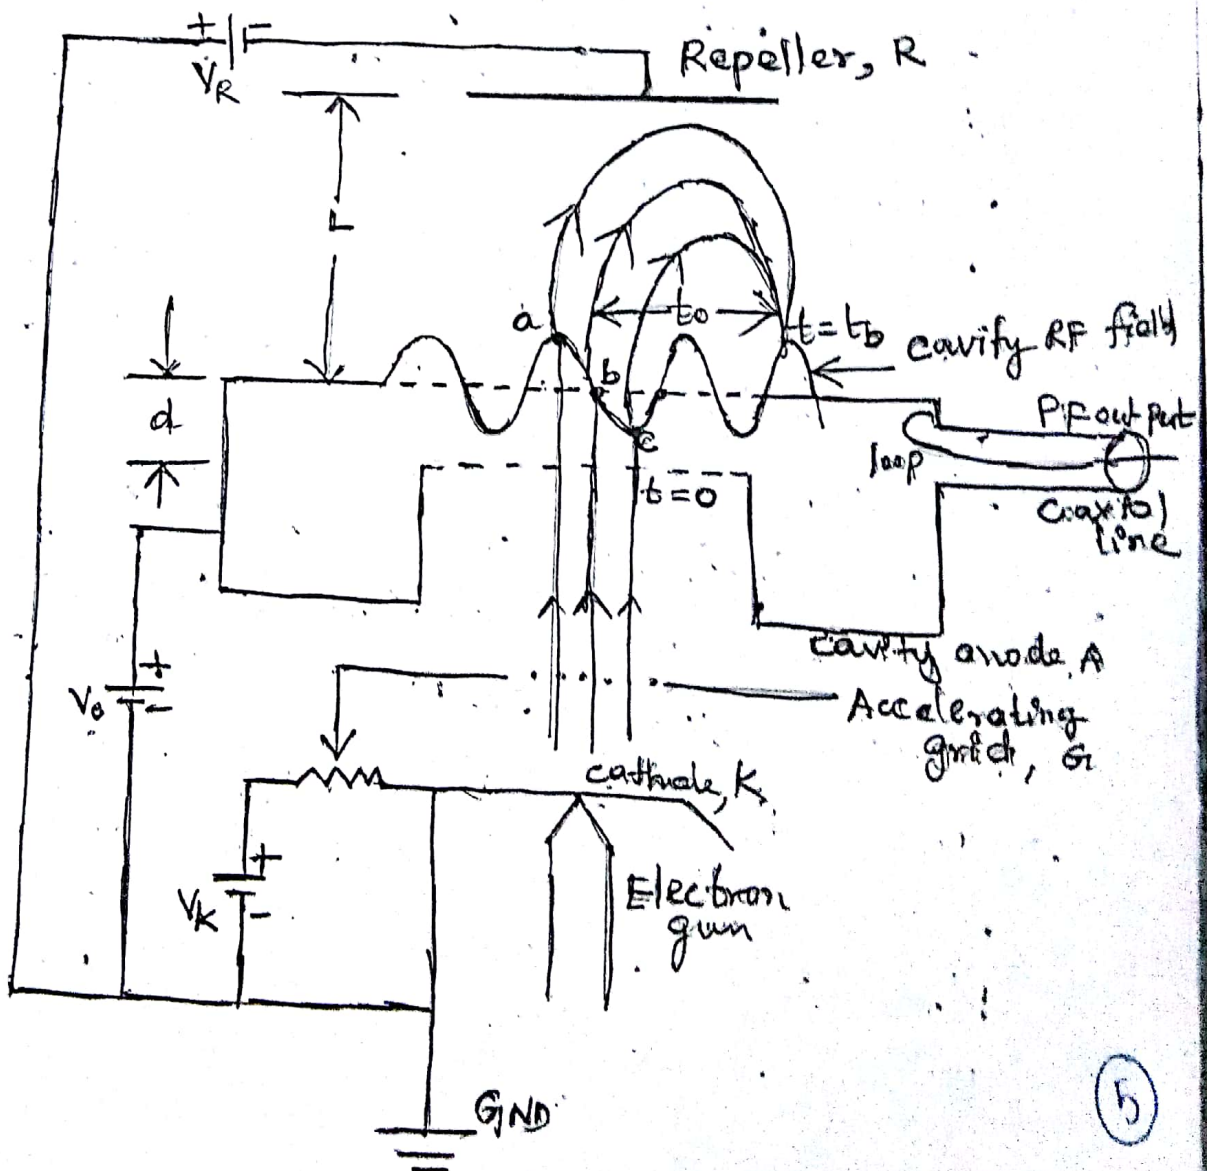 + -
VR
Repeller, R
L
a
to
t=tb
cavify RF field
b
d
c
loop
t=0
coaxital
line
+
Vo
-
cavity anode, A
Accelerating
grid, G
cathode, K
+
VK
-
Electron
gun
GND
5